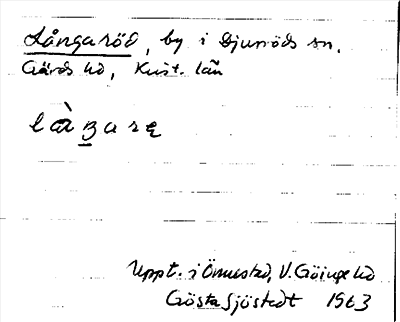 Långaröd, by i Djuröds sn.
Gärds hd, Krist. län
Uppt. i Önnestad, V. Göinge hd
Gösta Sjöstedt 1963